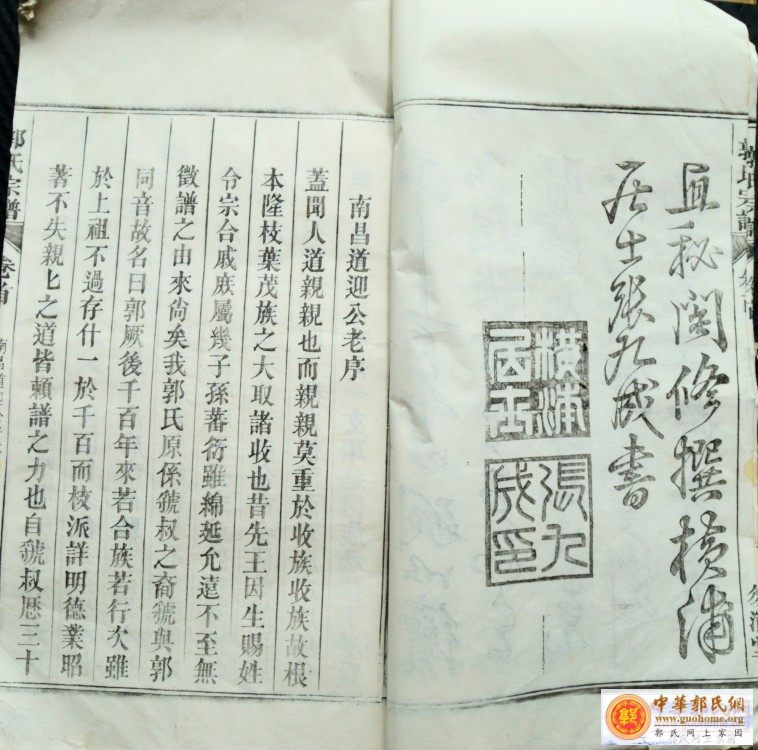 郭氏宗譜
直秘閣修撰橫浦
居士張九成書
橫浦居士
張九成印
南昌道迎公老序
蓋聞人道親親也而親親莫重於收族收族故根
本隆枝葉茂族之大取諸收也昔先王因生賜姓
令宗合戚庻屬幾子孫蕃衍雖綿延允遠不至無
徵譜之由來尚矣我郭氏原係虢叔之裔虢與郭
同音故名曰郭厥後千百年來若合族若行次雖
於上祖不過存什一於千百而枝派詳明德業昭
著不失親匕之道皆頼譜之力也自虢叔歷三十
郭氏宗譜
卷首
南昌道
中華郭氏網
www.guohome.org
郭氏网上家园